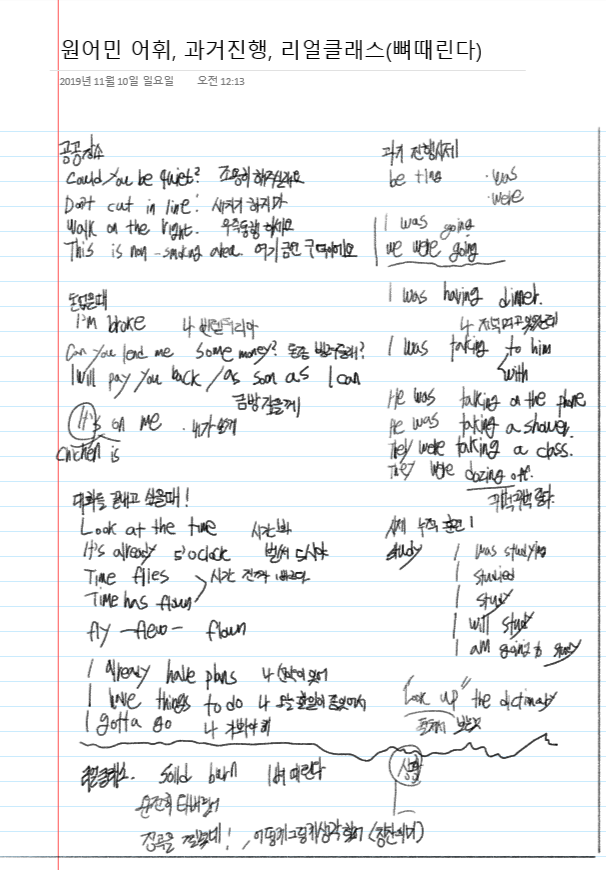 원어민 어휘, 과거진행, 리얼클래스(뼈때린다)
2019년 11월 10일 일요일 오전 12:13
공공장소
Could You be quiet? 조용히 해주실래요
Don't cut in line! 새치기 하지마
Walk on the right. 우측통행 하세요
This is non-smoking area. 여기 금연 구역이에요
돈없을때
I'm broke 나 빈털터리야
Can you lend me some money? 돈좀 빌려줄래?
I will pay you back / as soon as I can
금방 갚을게
It's on me . 내가 쏠게
chicken is
대화를 끝내고 싶을때!
Look at the time 시간봐
It's already 5 o'clock 벌써 5시야
Time flies 시간 진짜 빠르다
Time has flown
fly - flew - flown
I already have plans 나 선약이 있어
I have things to do 나 오늘 할일이 좀 있어서
I gotta go 나 가봐야해
리얼클래스. solid burn 뼈 때린다
완전히 타버렸어
정곡을 찔렀네!, 어떻게 그렇게 생각했어 (칭찬의미)
과거 진행시제
be + ing . was
. were
I was going
we were going
I was having dinner.
나 저녁먹고 있었는데
I was talking to him
with
He was talking on the phone
He was taking a shower.
They were taking a class.
They were dozing off.
꾸벅꾸벅 졸다
시제 누적 훈련!
study I was studying
I studied
I study
I will study
I am going to study
"Look up" the dictionary
상황